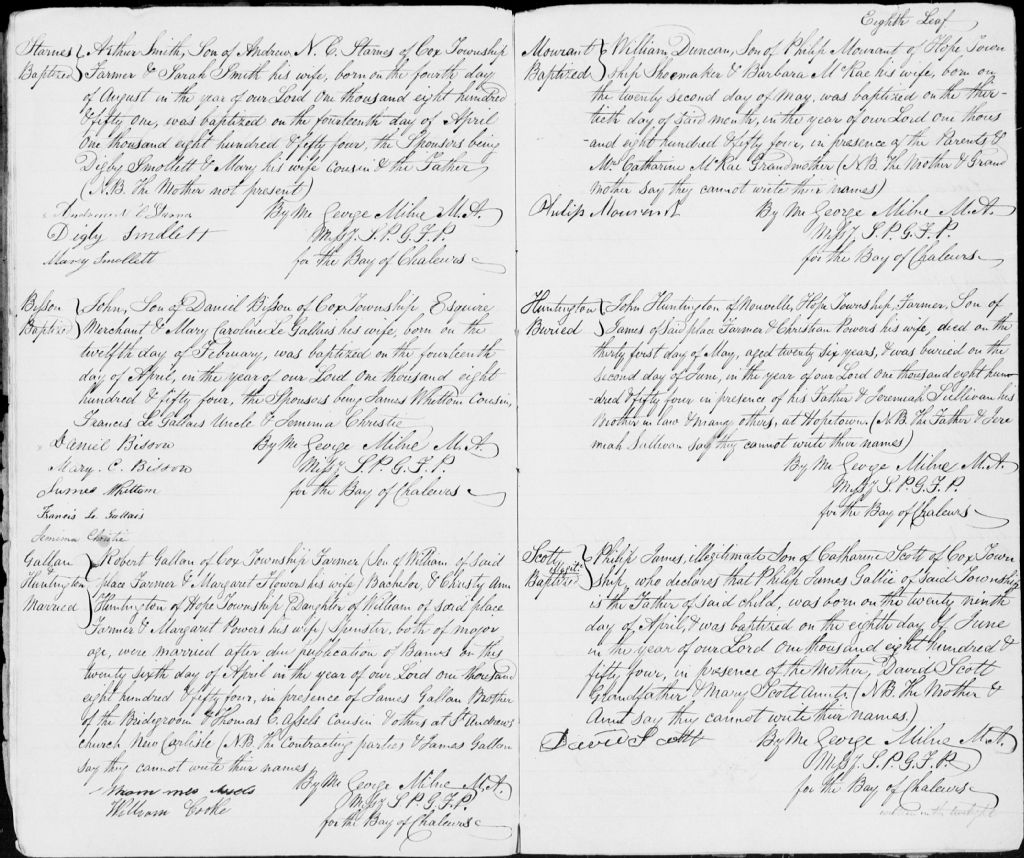 Starnes Arthur Smith, Son of Andrew N. C. Starnes of Cox Township
Baptized Farmer & Sarah Smith his wife, born on the fourth day
of August in the year of our Lord one thousand eight hundred
& fifty one, was baptized on the fourteenth day of April
one thousand eight hundred & fifty four, the Sponsors being
Digby Smollett & Mary his wife cousin & the Father
(N.B. The Mother not present)
By Me George Milne M.A.
Digby Smollett Missy. S.P.G.F.P.
Mary Smollett for the Bay of Chaleurs
Bisson John, Son of Daniel Bisson of Cox Township, Esquire
Baptized Merchant & Mary Caroline Le Gallais his wife, born on the
twelfth day of February, was baptized on the fourteenth
day of April, in the year of our Lord one thousand eight
hundred & fifty four, the Sponsors being James Whittom Cousin,
Francis Le Gallais Uncle & Jemima Christie
Daniel Bisson By Me George Milne M.A.
Mary. C. Bisson Missy. S.P.G.F.P.
James Whittom for the Bay of Chaleurs
Francis Le Gallais
Jemima Christie
Gallan Robert Gallan of Cox Township Farmer (Son of William of said
& Huntington place Farmer & Margaret Flower his wife) Bachelor, & Christy Ann
Married Huntington of Hope Township (Daughter of William of said place
Farmer & Margaret Powers his wife) Spinster, both of major
age, were married after due publication of Banns on this
twenty sixth day of April in the year of our Lord one thousand
eight hundred & fifty four, in presence of James Gallan Brother
of the Bridegroom & Thomas C. Assels Cousin & others at St Andrews
church New Carlisle (N.B. the Contracting parties & James Gallan
say they cannot write their names
By Me George Milne M.A.
William Cooke Missy. S.P.G.F.P.
for the Bay of Chaleurs
Eighth Leaf
Mourant William Duncan, Son of Philip Mourant of Hope Town
Baptized ship Shoemaker & Barbara McRae his wife, born on
the twenty second day of May, was baptized on the thir-
tieth day of said month, in the year of our Lord one thous
-and eight hundred & fifty four, in presence of the Parents &
Mrs Catharine McRae Grandmother (N.B. The Mother & Grand
mother say they cannot write their names)
Philip Mourant By Me George Milne M.A.
Missy. S.P.G.F.P.
for the Bay of Chaleurs
Huntington John Huntington of Nouvelle, Hope Township, Farmer, Son of
Buried James of said place Farmer & Christian Powers his wife, died on the
thirty first day of May, aged twenty six years, & was buried on the
second day of June, in the year of our Lord one thousand eight hun-
-dred & fifty four in presence of his Father & Jeremiah Sullivan his
Brother in law & many others, at Hopetown. (N.B. The Father & Jere
miah Sullivan say they cannot write their names)
By Me George Milne M.A.
Missy. S.P.G.F.P.
for the Bay of Chaleurs
Scott Philip James, illegitimate Son of Catharine Scott of Cox Town
illegit:
Baptized ship, who declares that Philip James Gallie of said Township
is the Father of said child, was born on the twenty ninth
day of April, & was baptized on the eighth day of June
in the year of our Lord one thousand eight hundred &
fifty four, in presence of the Mother, David Scott
Grandfather & Mary Scott Aunt. (N.B. The Mother &
Aunt say they cannot write their names.)
David Scott By Me George Milne M.A.
Missy. S.P.G.F.P.
for the Bay of Chaleurs